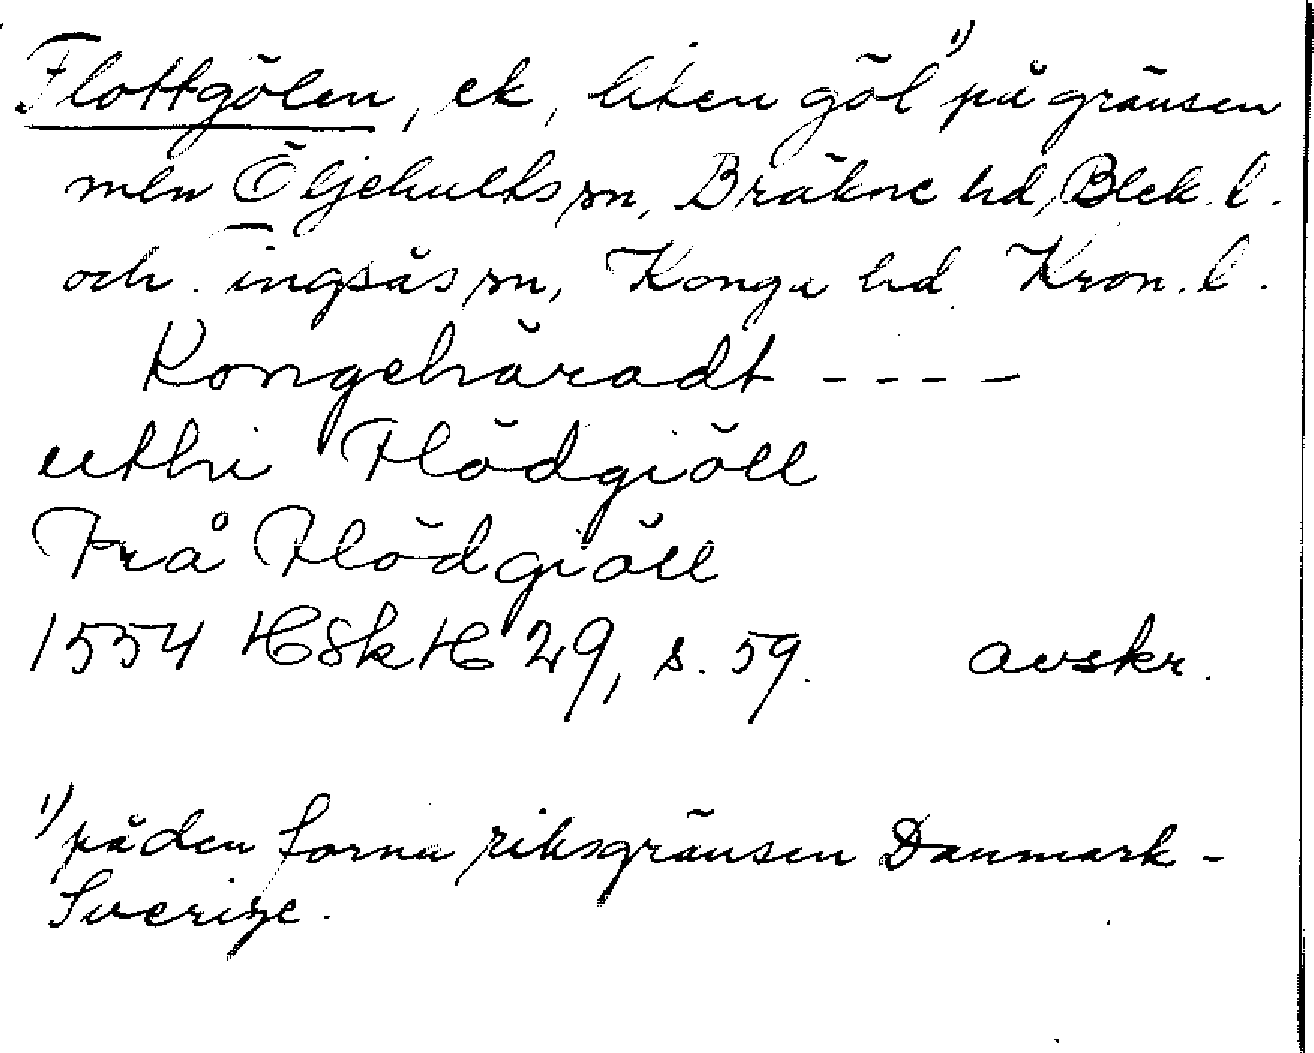 Flottgölen, ek, liten göl 1) på gränsen
mln Öljehults sn, Bräkne hd, Blek. l.
och Tingsås sn, Konga hd Kron. l.
Kongehäradt - - - -
utthi Flödgiöll
Frå Flödgiöll
1554 HSkH 29, s. 59. avskr.
1) på den forna riksgränsen Danmark -
Sverige.